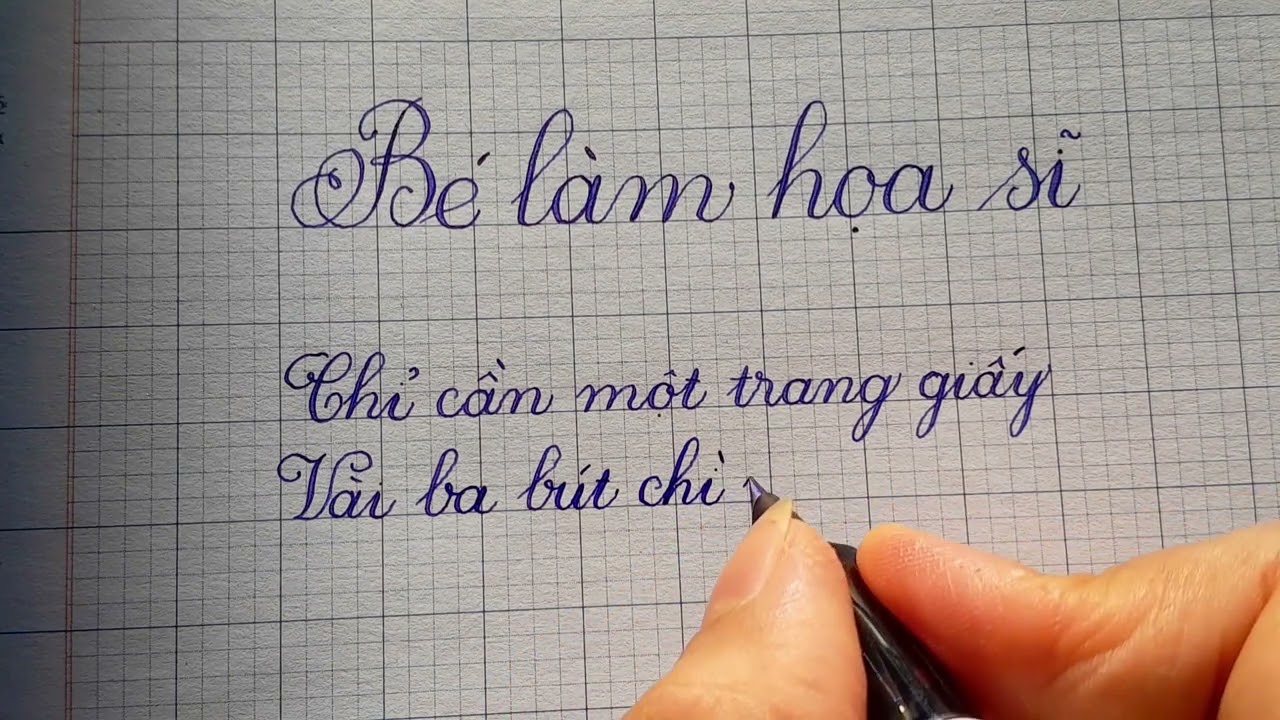 Bé làm họa sĩ
Chỉ cần một trang giấy
Vài ba bút chì